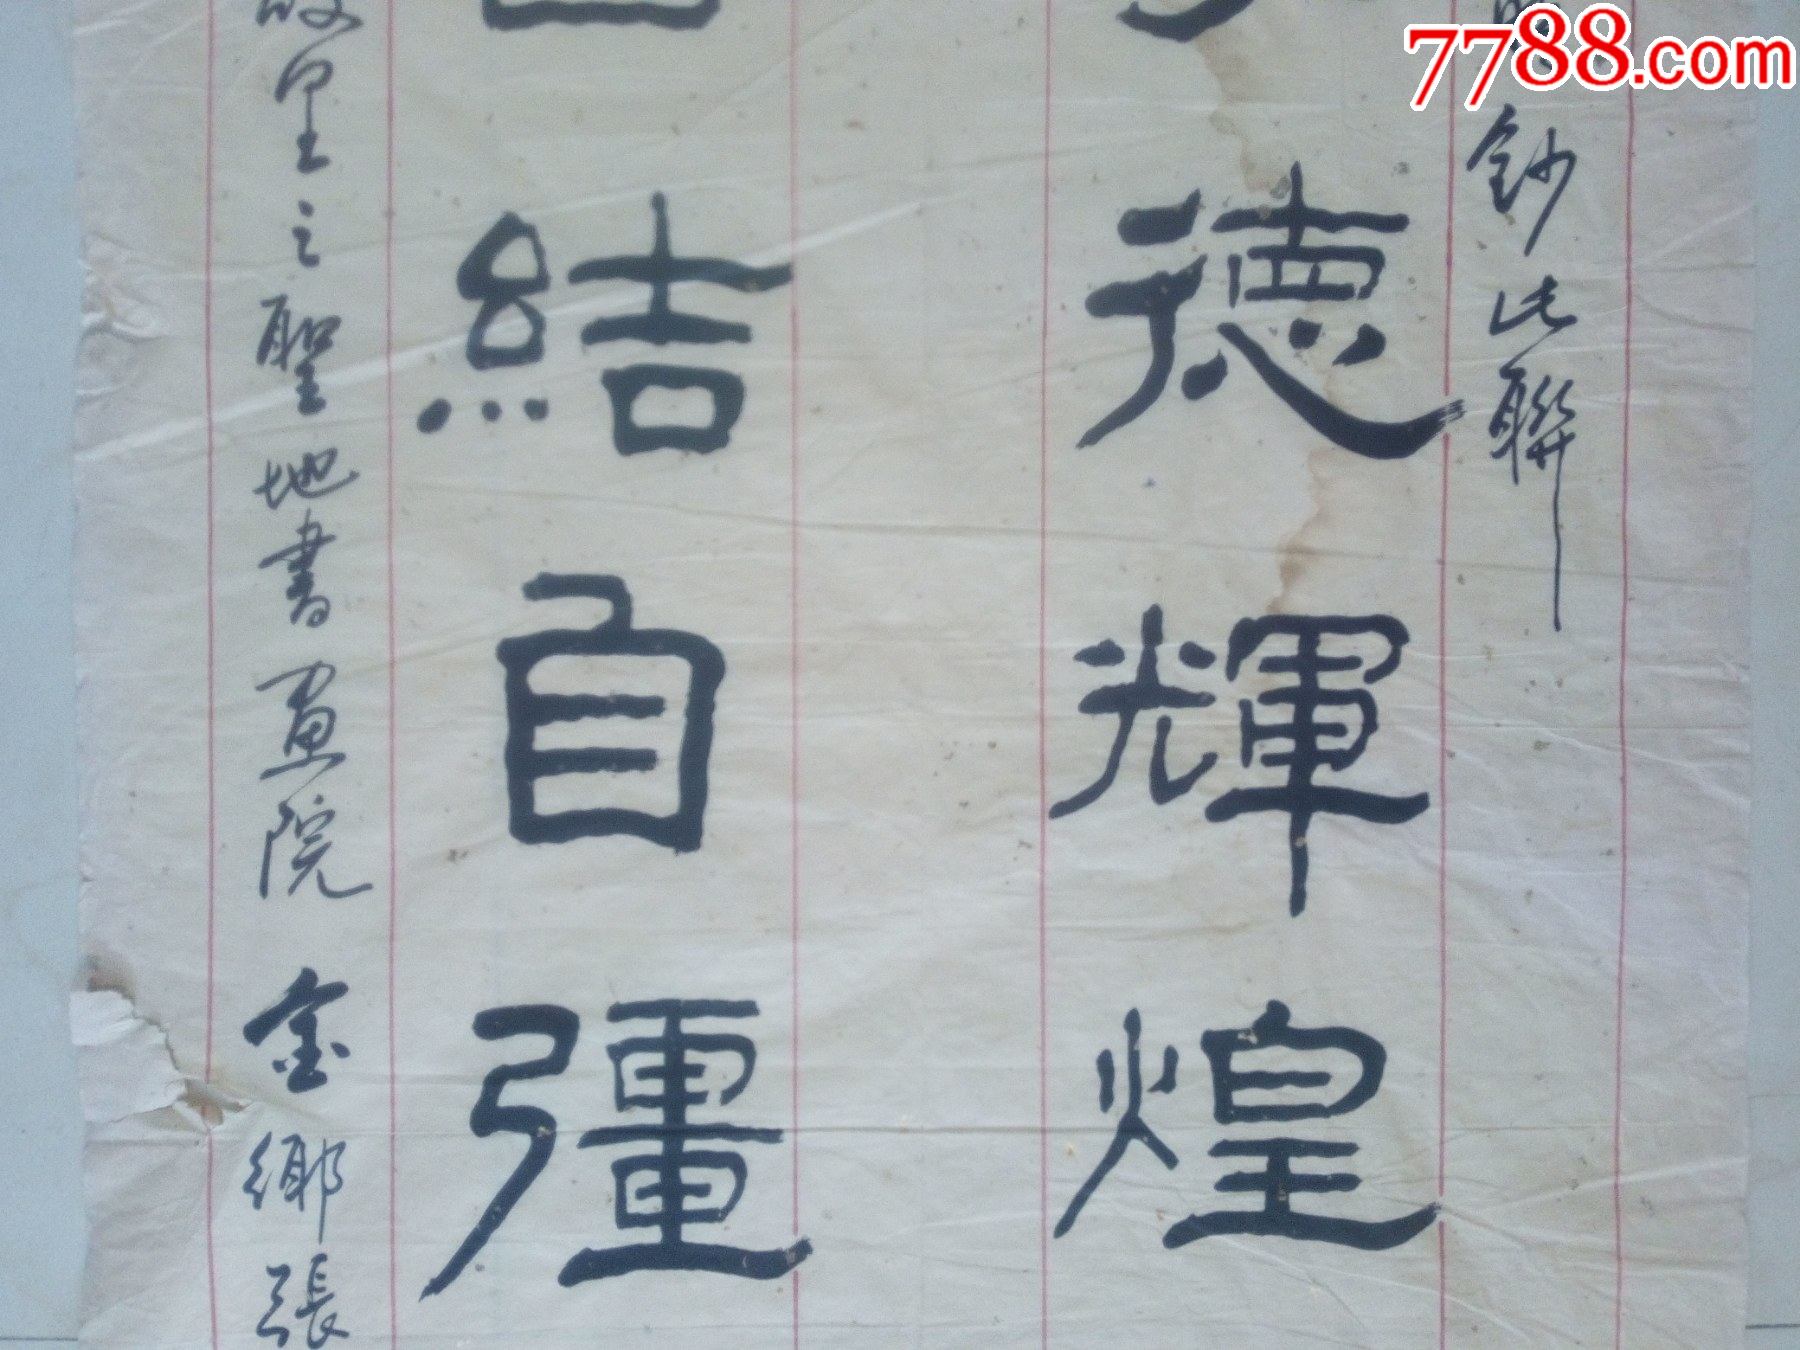 7788.com
鈔此聯
德輝煌
結自彊
里之聖地書畫院 金鄉張